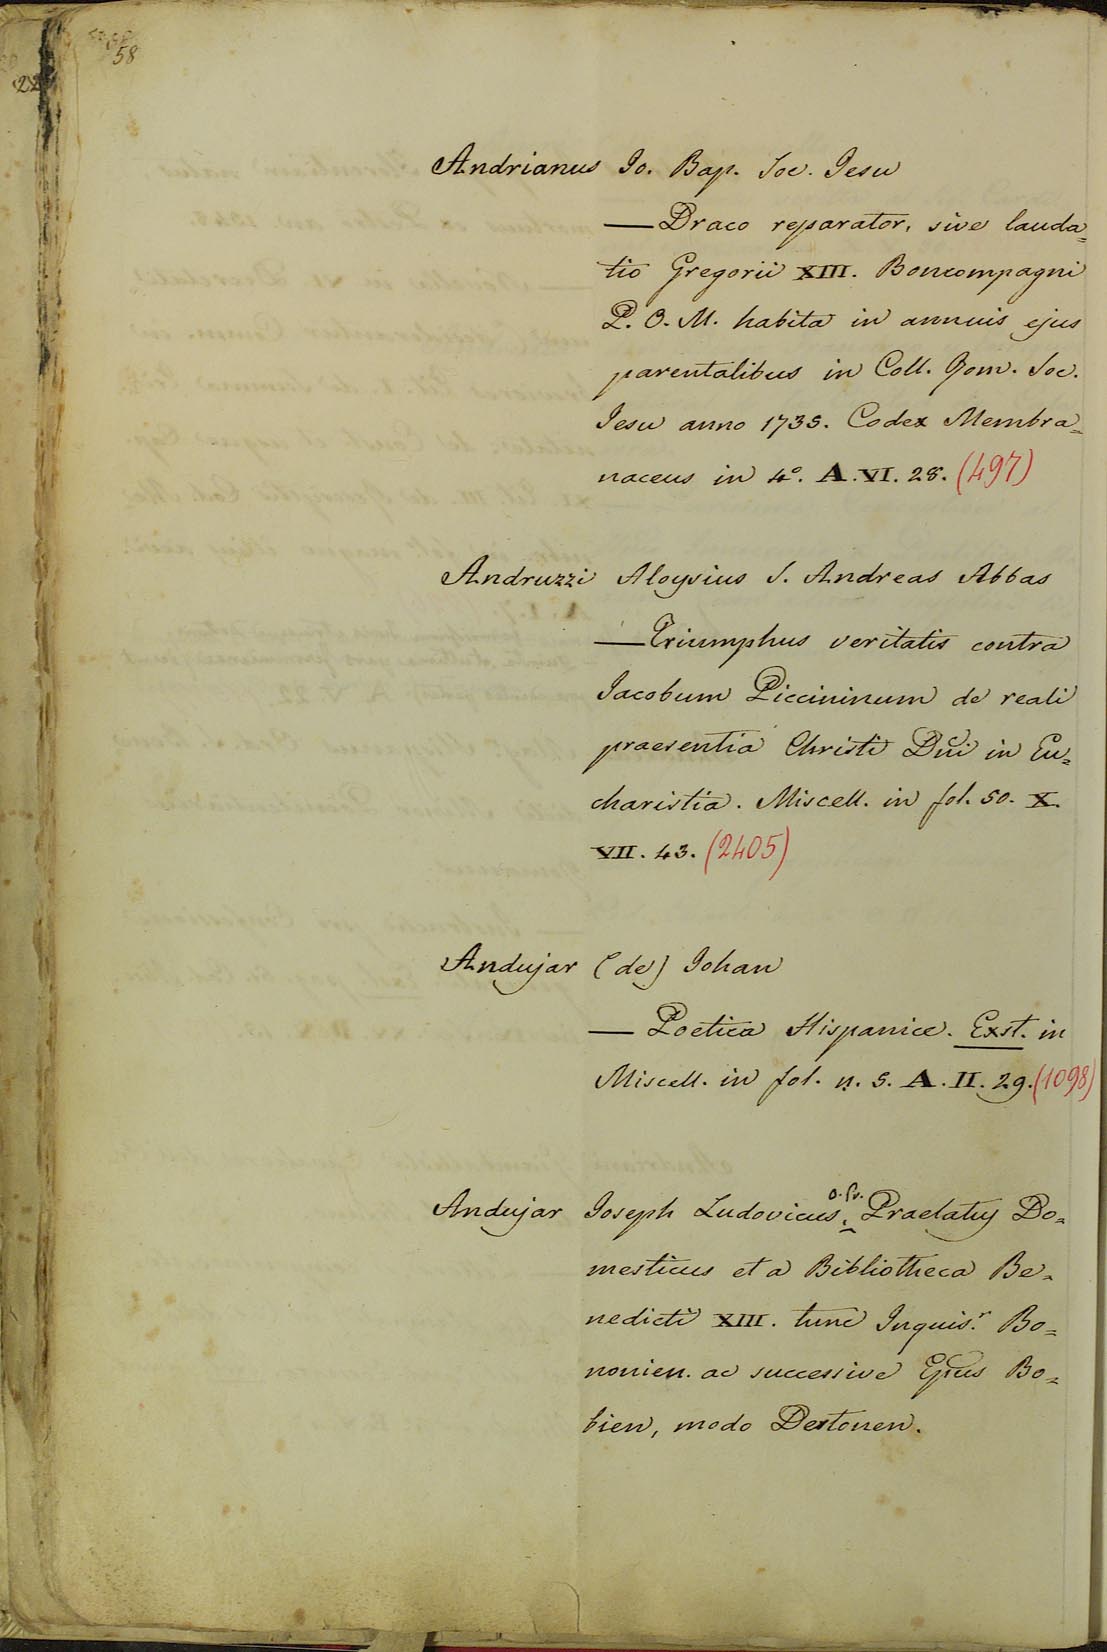 58
22
Andrianus Io. Bap. Soc. Iesu
— Draco reparator, sive lauda=
tio Gregorii XIII. Boncompagni
P. O. M. habita in annuis ejus
parentalibus in Coll. Rom. Soc.
Iesu anno 1735. Codex Membra=
naceus in 4º. A. VI. 28. (497)
Andruzzi Aloysius S. Andreas Abbas
— Triumphus veritatis contra
Iacobum Piccininum de reali
praesentia Christi Dñi in Eu=
charistia. Miscell. in fol. 50. X.
VII. 43. (2405)
Andujar (de) Iohan
— Poetica Hispanice. Exst. in
Miscell. in fol. n. 5. A. II. 29. (1098)
Andujar Joseph Ludovicus, O. Pr. Praelatus Do=
mesticus et a Bibliotheca Be=
nedicti XIII. tunc Inquis.r Bo=
nonien. ac successive Epus Bo=
bien, modo Dertonen.